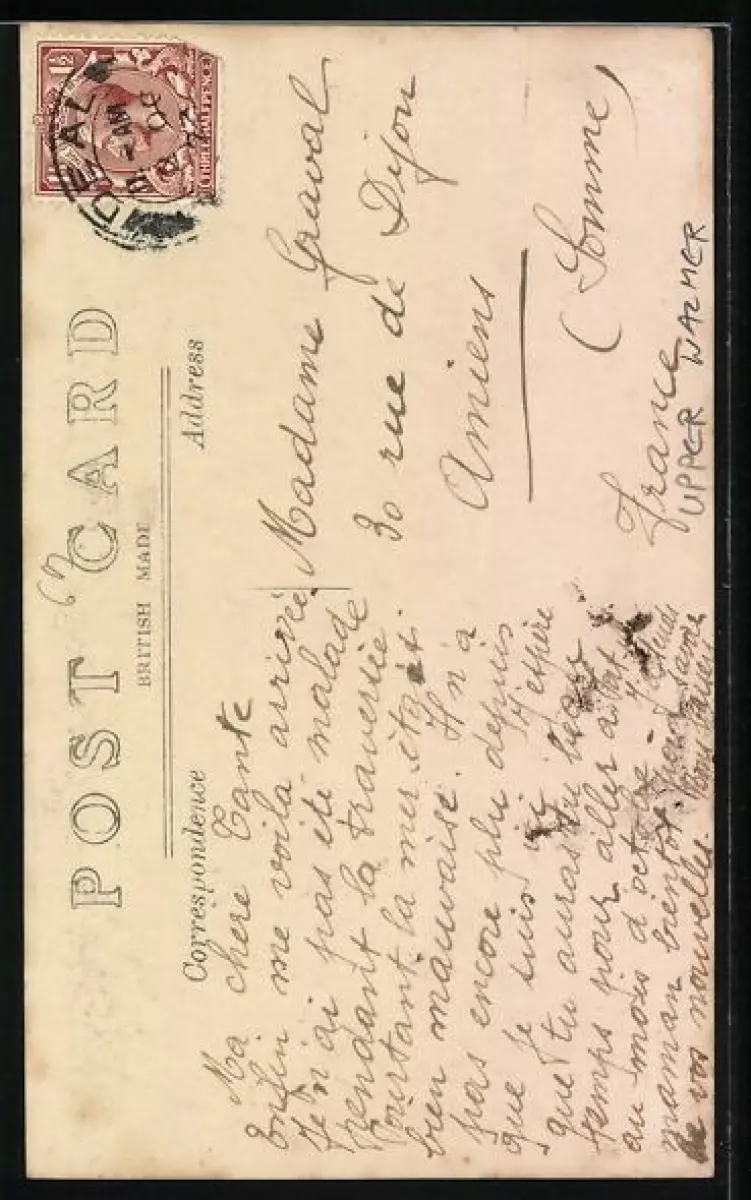 POST CARD
67
BRITISH MADE
Correspondence
Address
1½
THREE HALFPENCE
DEAL
AM
Ma chere Tante
Enfin me voila arrivée
Je n'ai pas été malade
pendant la traversée
Pourtant la mer était
bien mauvaise. Il n'a
pas encore plu depuis
que je suis ici J'espère
que tu auras du beau
temps pour aller a
au mois d'octobre.
maman bientot.
de vos nouvelles.
Madame Graval
30 rue de Dijon
Amiens
(Somme)
France
UPPER WALMER